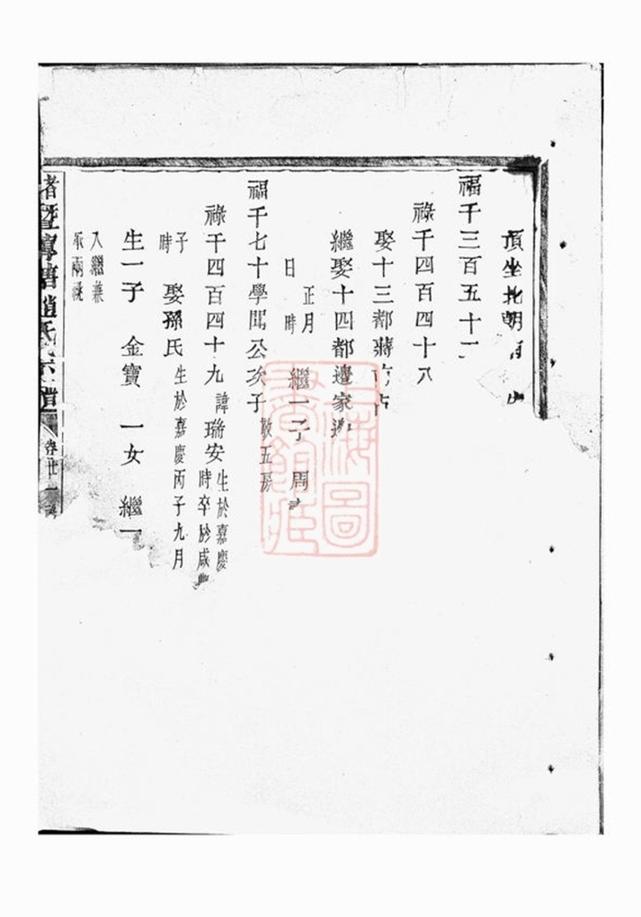 頂坐北朝
福千三百五十
祿千四百四十
娶十三都蔣
繼娶十四都邊家
正月
日 時 繼一子 周
福千七十學聞公次子 敬五房
祿千四百四十九 諱瑞安 生於嘉慶
時卒於咸
子 娶孫氏 生於嘉慶丙子九月
時
生一子 金寶 一女 繼一
入繼兼
承兩祧
諸暨 塘趙氏宗譜 卷廿一
上海圖書館藏